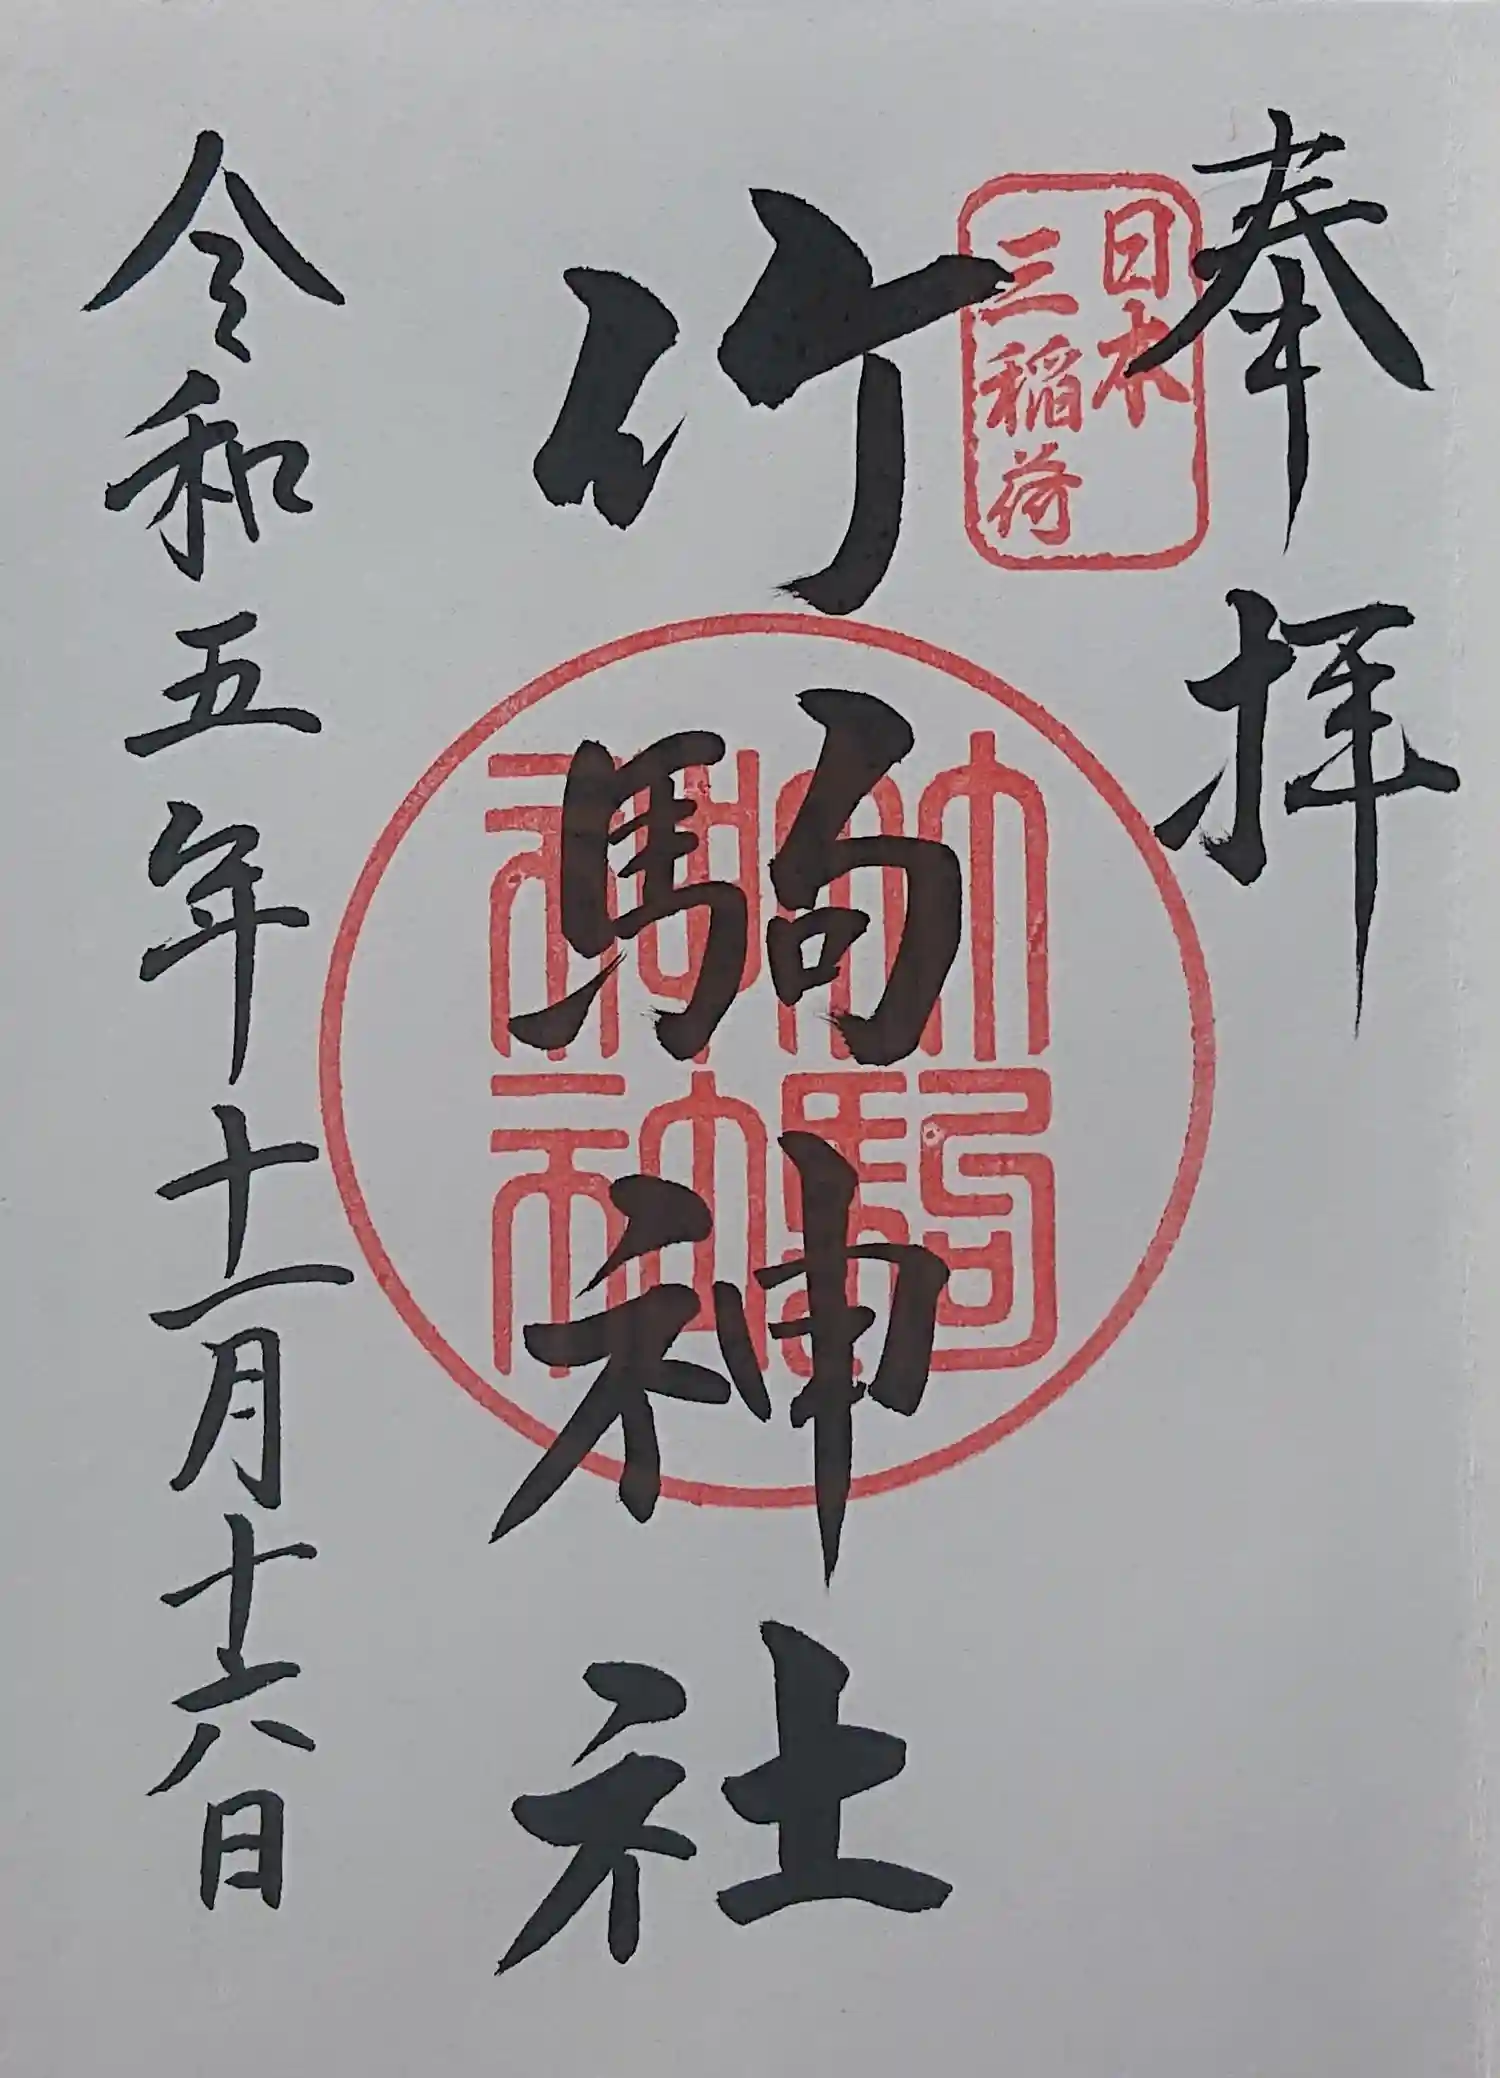 奉拝
日本
三稲荷
竹駒神社
竹駒
神社
令和五年十一月十六日